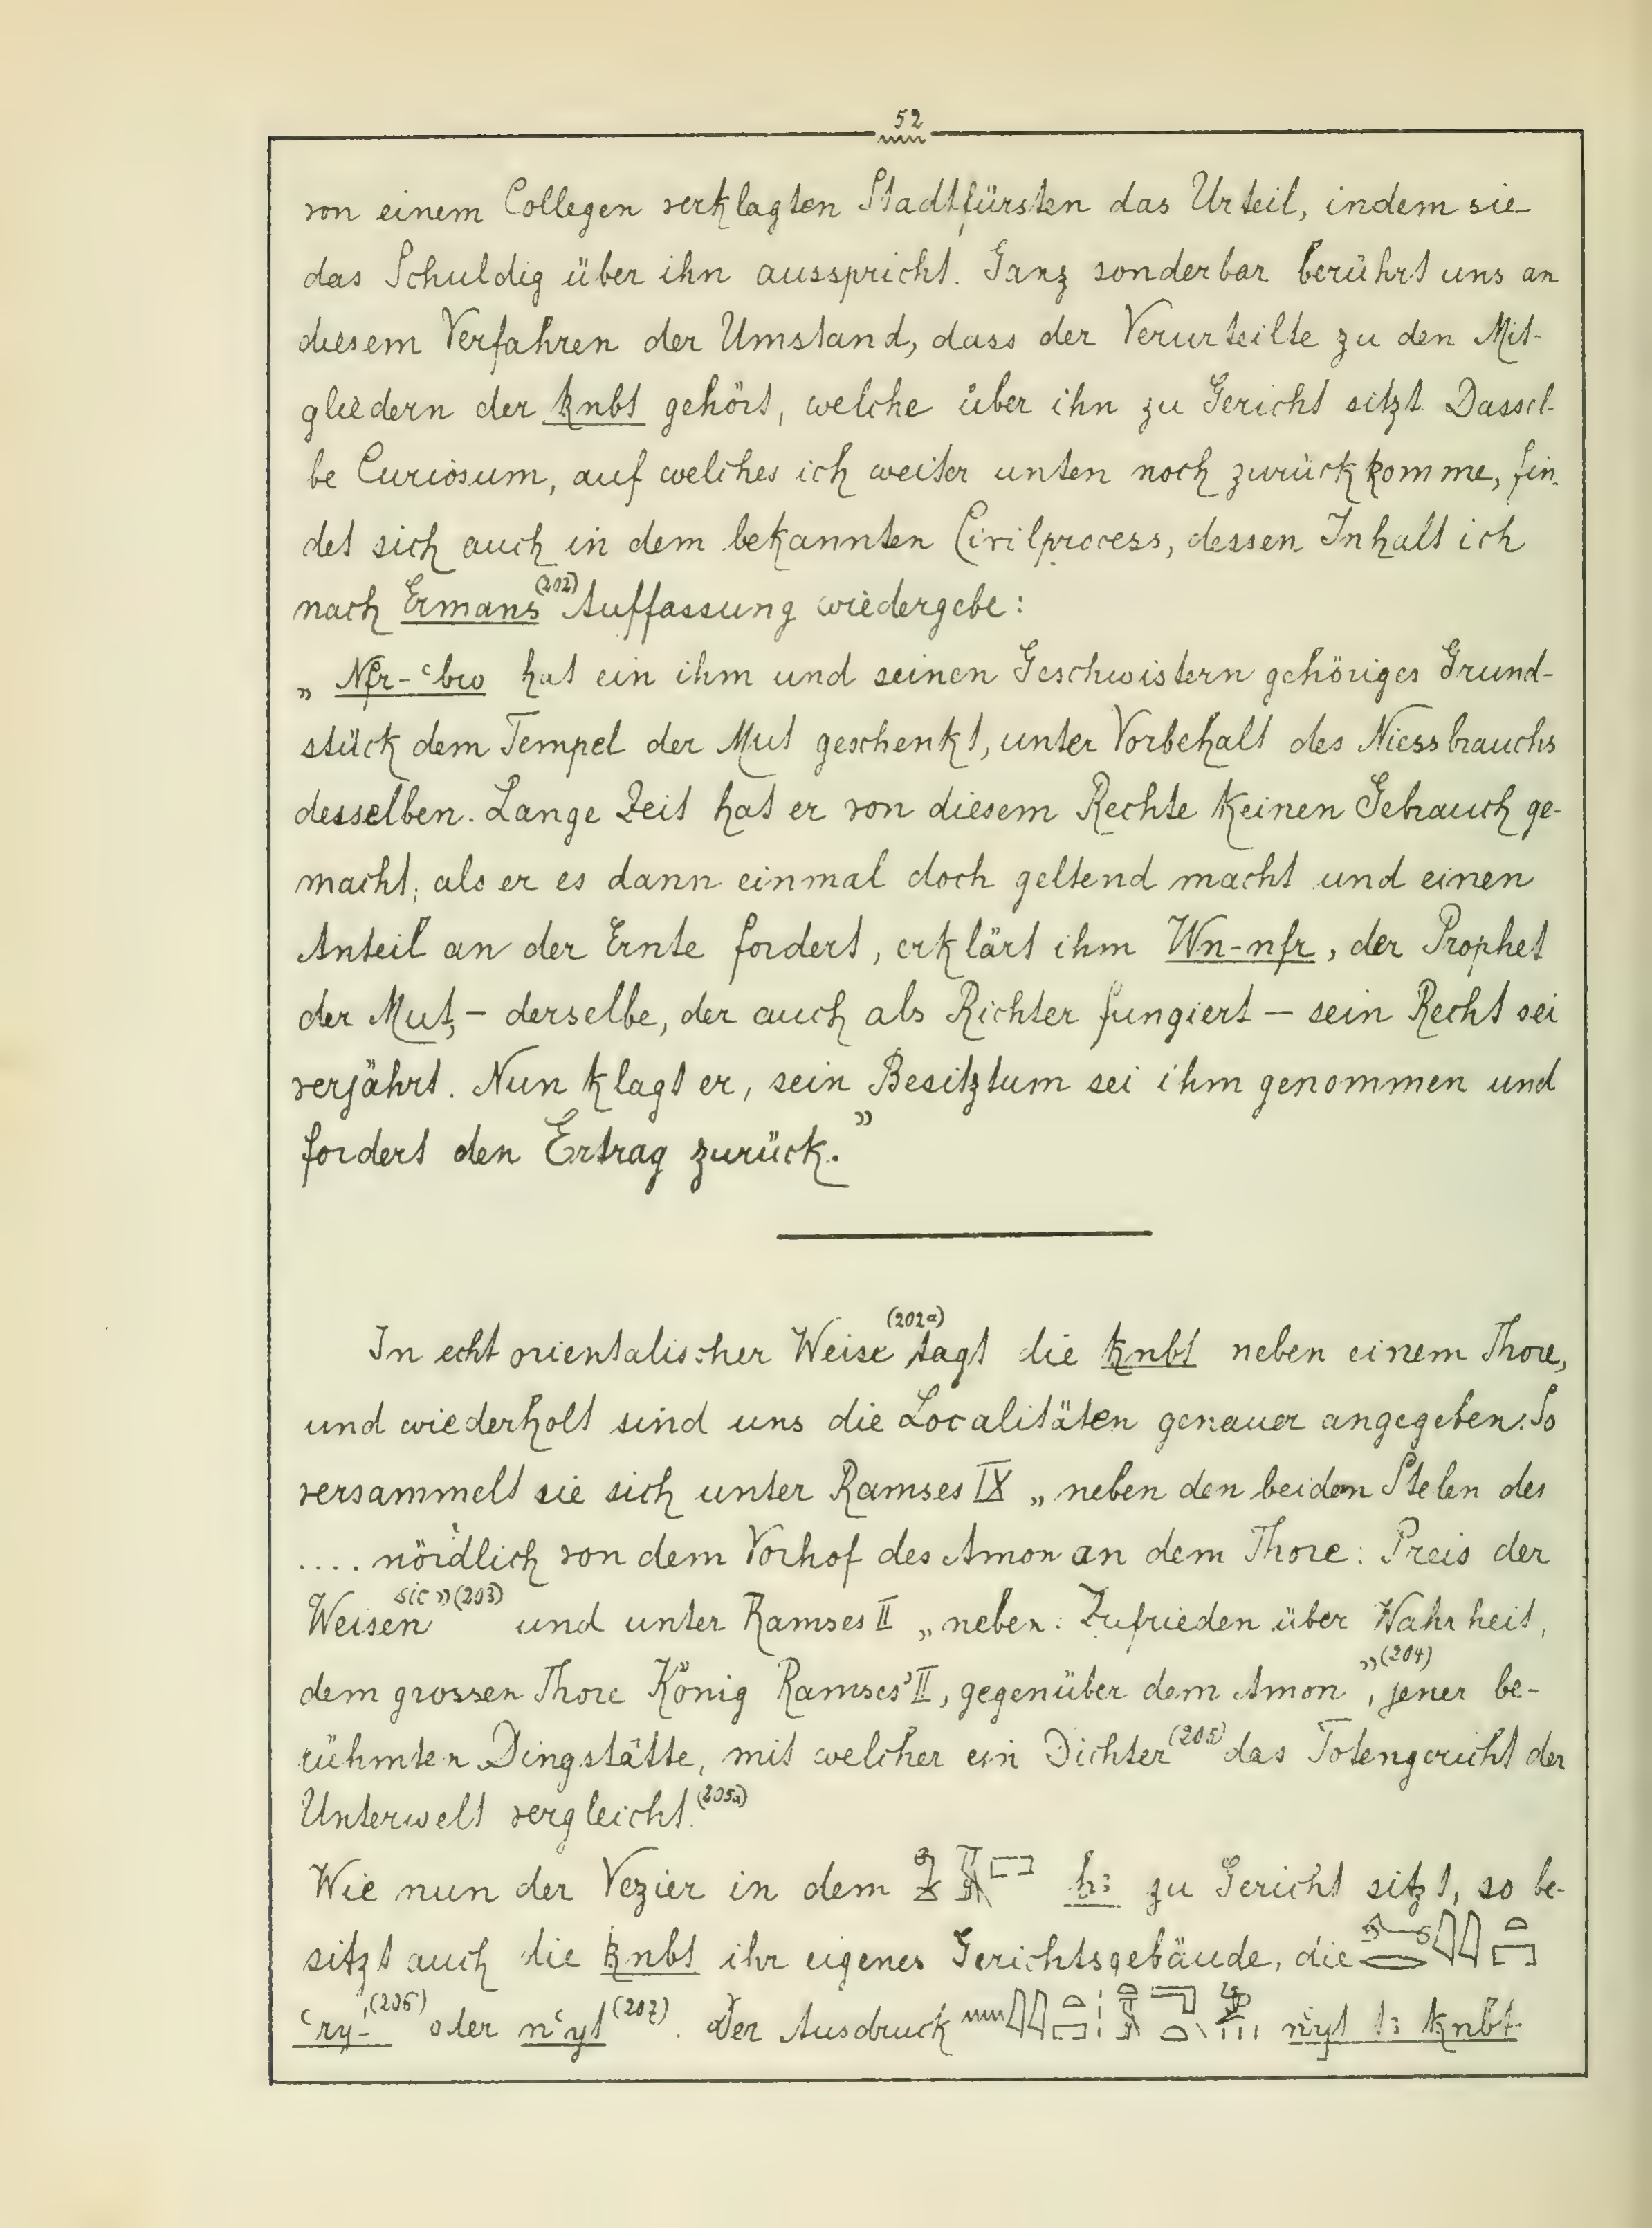 52
von einem Collegen verklagten Stadtfürsten das Urteil, indem sie
das Schuldig über ihn ausspricht. Ganz sonderbar berührt uns an
diesem Verfahren der Umstand, dass der Verurteilte zu den Mit-
gliedern der knbt gehört, welche über ihn zu Gericht sitzt. Dassel-
be Curiosum, auf welches ich weiter unten noch zurückkomme, fin-
det sich auch in dem bekannten Civilprocess, dessen Inhalt ich
nach Ermans (202) Auffassung wiedergebe:
„ Nfr-ʿbw hat ein ihm und seinen Geschwistern gehöriges Grund-
stück dem Tempel der Mut geschenkt, unter Vorbehalt des Niessbrauchs
desselben. Lange Zeit hat er von diesem Rechte keinen Gebrauch ge-
macht; als er es dann einmal doch geltend macht und einen
Anteil an der Ernte fordert, erklärt ihm Wn-nfr, der Prophet
der Mut, – derselbe, der auch als Richter fungiert – sein Recht sei
verjährt. Nun klagt er, sein Besitztum sei ihm genommen und
fordert den Ertrag zurück.”
In echt orientalischer Weise (202a) tagt die knbt neben einem Thore,
und wiederholt sind uns die Localitäten genauer angegeben. So
versammelt sie sich unter Ramses IX „neben den beiden Stelen des
.... nördlich von dem Vorhof des Amon an dem Thore: Preis der
Weisen sic” (203) und unter Ramses II „neben: Zufrieden über Wahrheit,
dem grossen Thore König Ramses' II, gegenüber dem Amon” (204), jener be-
rühmten Dingstätte, mit welcher ein Dichter (205) das Totengericht der
Unterwelt vergleicht. (205a)
Wie nun der Vezier in dem h3 zu Gericht sitzt, so be-
sitzt auch die knbt ihr eigenes Gerichtsgebäude, die
ʿry-t (206) oder nʿyt (207). Der Ausdruck nʿyt t3 knbt